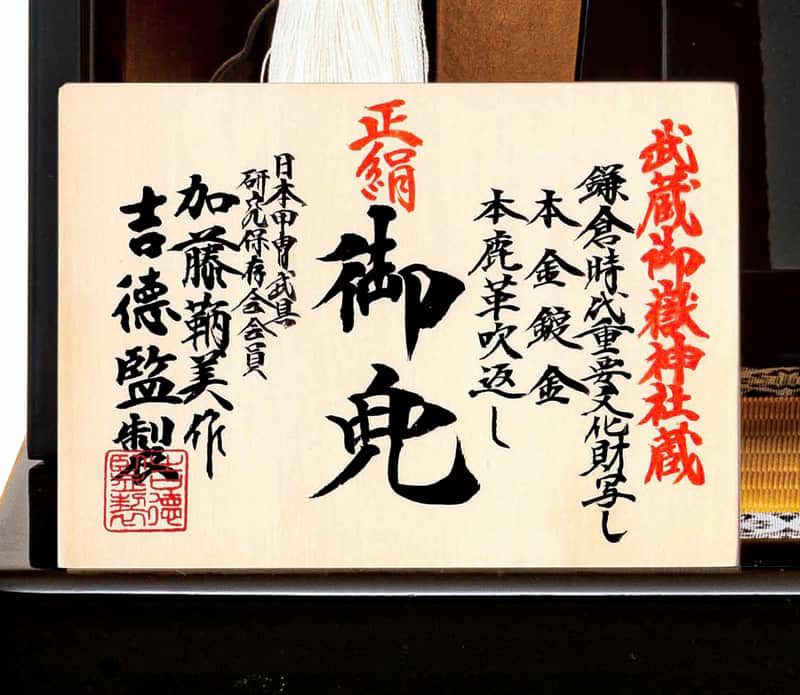 武蔵御嶽神社蔵
鎌倉時代重要文化財写し
本金鍍金
本鹿革吹返し
正絹
御兜
日本甲冑武具
研究保存会会員
加藤鞆美作
吉德監製
吉德監製